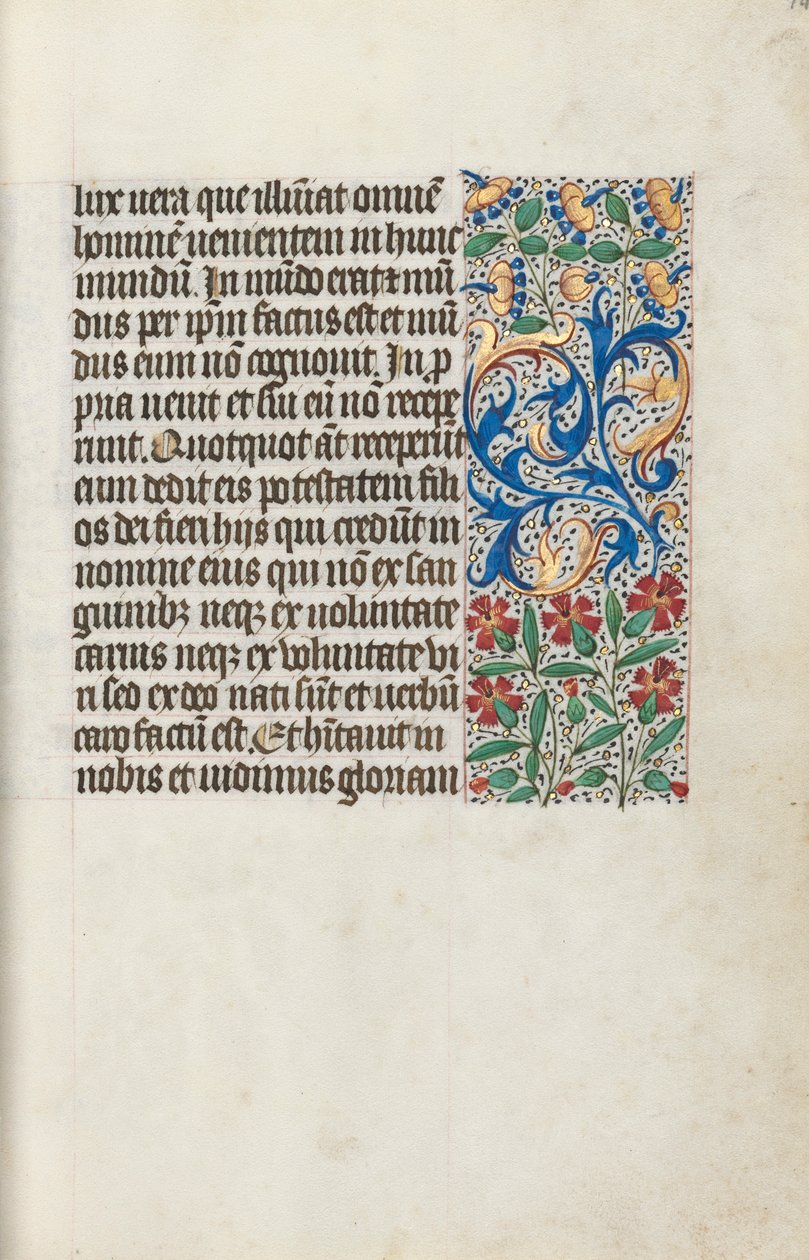 lux uera que illuı̄at omnē
hominē uenientem in hunc
mundū. In mūdo erat ⁊ mū
dus per ip̄m factus est et mū
dus eum nō cognouit. In ꝓ
pria uenit et sui eū nō recepe
runt. Quotquot āt receperūt
eum dedit eis potestatem fili
os dei fieri hijs qui credūt in
nomine eius qui nō ex san
guinibꝫ neqꝫ ex uoluntate
carnis neqꝫ ex voluntate vi
ri sed ex deo nati sūt et uerbū
caro factū est. Et hı̄tauit in
nobis et uidimus gloriam